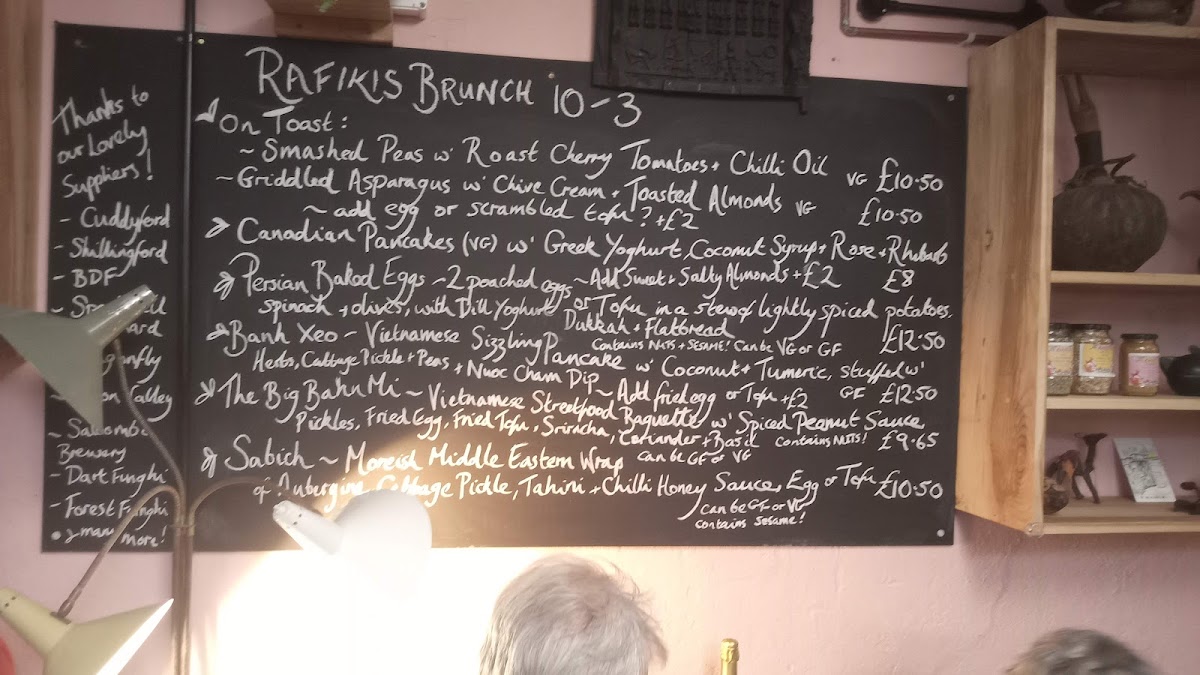 Thanks to
our Lovely
Suppliers!
- Cuddyford
- Shillingford
- BDF
~ Salcombe
Brewery
- Dart Funghi
- Forest Funghi
& many more!
RAFIKIS BRUNCH 10-3
On Toast:
~ Smashed Peas w' Roast Cherry Tomatoes + Chilli Oil VG £10.50
~ Griddled Asparagus w' Chive Cream + Toasted Almonds VG £10.50
~ add egg or scrambled tofu? +£2
Canadian Pancakes (VG) w' Greek Yoghurt, Coconut Syrup + Rose + Rhubarb
~ Add Sweet + Salty Almonds +£2 £8
Persian Baked Eggs - 2 poached eggs or Tofu in a stew of lightly spiced potatoes,
spinach + olives, with Dill Yoghurt, Dukkah + Flatbread £12.50
Contains NUTS + SESAME! Can be VG or GF
Banh Xeo - Vietnamese Sizzling Pancake w' Coconut + Tumeric, stuffed w'
Herbs, Cabbage Pickle + Peas + Nuoc Cham Dip ~ Add fried egg or Tofu +£2 GF £12.50
The Big Bahn Mi ~ Vietnamese Streetfood Baguette w' Spiced Peanut Sauce
Pickles, Fried Egg, Fried Tofu, Sriracha, Coriander + Basil contains NUTS! £9.65
can be GF or VG
Sabich ~ Moreish Middle Eastern Wrap
of Aubergine, Cabbage Pickle, Tahini + Chilli Honey Sauce, Egg or Tofu £10.50
can be GF or VG
contains sesame!